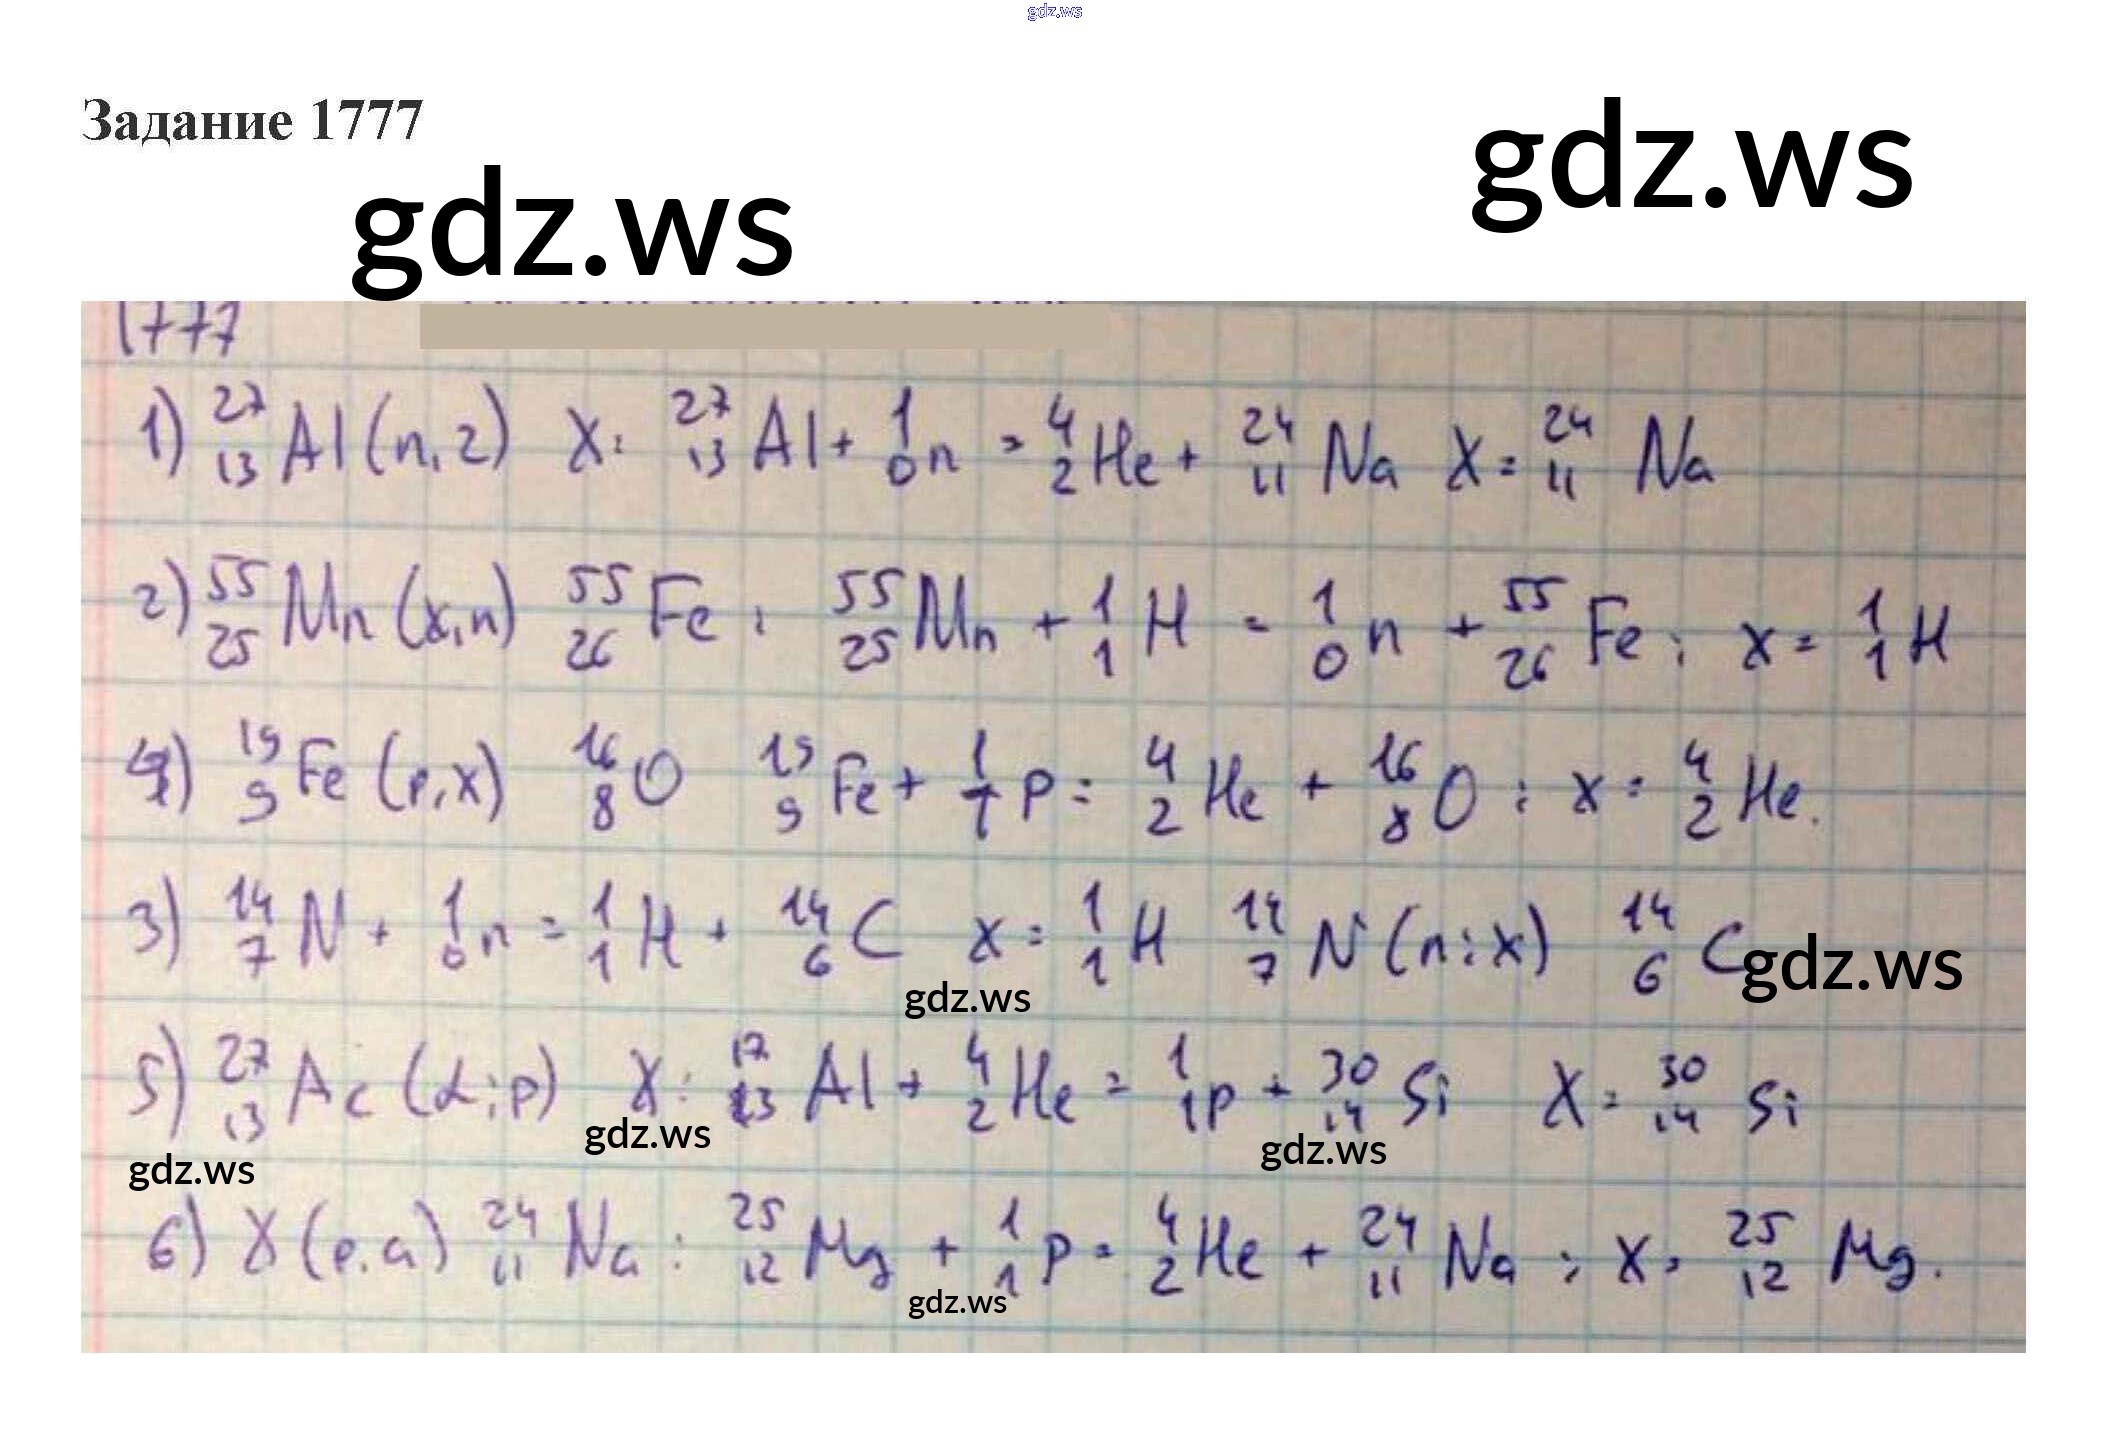 gdz.ws
Задание 1777
gdz.ws
gdz.ws
1777
1) ²⁷₁₃Al (n, 2) X: ²⁷₁₃Al + ¹₀n = ⁴₂He + ²⁴₁₁Na X = ²⁴₁₁Na
2) ⁵⁵₂₅Mn (x, n) ⁵⁵₂₆Fe; ⁵⁵₂₅Mn + ¹₁H = ¹₀n + ⁵⁵₂₆Fe; x = ¹₁H
4) ¹⁹₉Fe (p, x) ¹⁶₈O ¹⁹₉Fe + ¹₁p = ⁴₂He + ¹⁶₈O; x = ⁴₂He.
3) ¹⁴₇N + ¹₀n = ¹₁H + ¹⁴₆C x = ¹₁H ¹⁴₇N (n; x) ¹⁴₆C
gdz.ws
gdz.ws
5) ²⁷₁₃Ac (α; p) X: ¹⁷₁₃Al + ⁴₂He = ¹₁p + ³⁰₁₄Si X = ³⁰₁₄Si
gdz.ws
gdz.ws
gdz.ws
6) X (p, a) ²⁴₁₁Na: ²⁵₁₂Mg + ¹₁p = ⁴₂He + ²⁴₁₁Na; X = ²⁵₁₂Mg.
gdz.ws